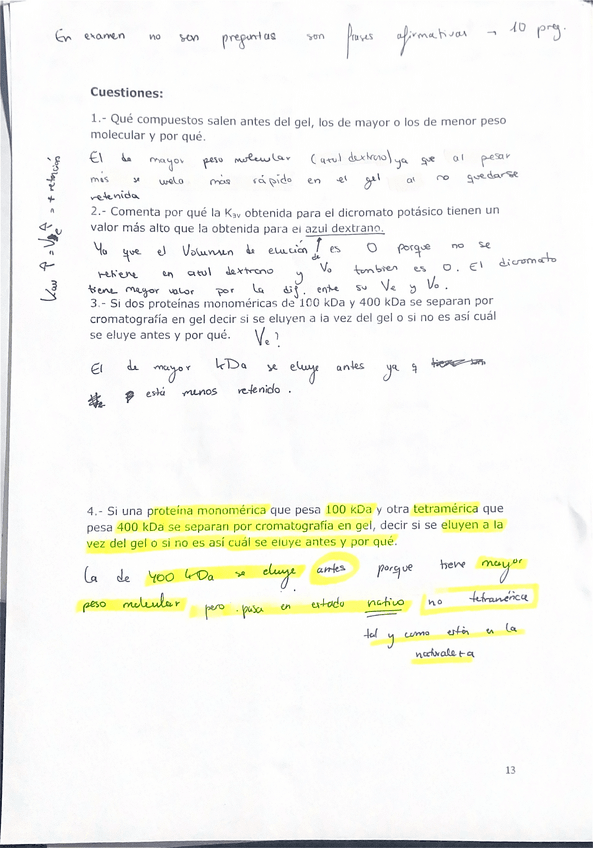 En examen no son preguntas son frases afirmativas → 10 preg.
Cuestiones:
1.- Qué compuestos salen antes del gel, los de mayor o los de menor peso
molecular y por qué.
El de mayor peso molecular (azul dextrano) ya que al pesar
más se cuela más rápido en el gel al no quedarse
retenida
2.- Comenta por qué la Kav obtenida para el dicromato potásico tienen un
valor más alto que la obtenida para el azul dextrano.
Ya que el Volumen de elución es 0 porque no se
retiene en azul dextrano y Vo tambien es 0. El dicromato
tiene mayor valor por la dif. entre su Ve y Vo.
3.- Si dos proteínas monoméricas de 100 kDa y 400 kDa se separan por
cromatografía en gel decir si se eluyen a la vez del gel o si no es así cuál
se eluye antes y por qué. Ve?
El de mayor kDa se eluye antes ya q
está menos retenido.
4.- Si una proteína monomérica que pesa 100 kDa y otra tetramérica que
pesa 400 kDa se separan por cromatografía en gel, decir si se eluyen a la
vez del gel o si no es así cuál se eluye antes y por qué.
La de 400 kDa se eluye antes porque tiene mayor
peso molecular pero pasa en estado nativo no tetramérica
tal y como están en la
naturaleza
13